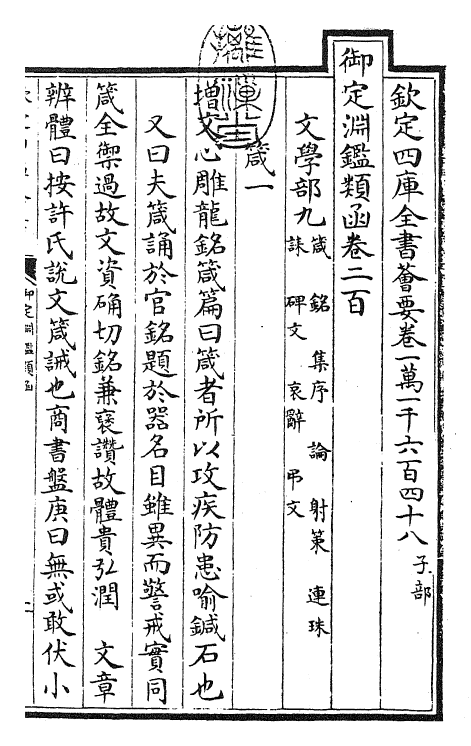 欽定四庫全書薈要卷一萬一千六百四十八 子部
御定淵鑑類函卷二百
文學部九 箴 銘 集序 論 射策 連珠
誄 碑文 哀辭 弔文
箴一
增文心雕龍銘箴篇曰箴者所以攻疾防患喻鍼石也
又曰夫箴誦於官銘題於器名目雖異而警戒實同
箴全禦過故文資确切銘兼褒讚故體貴弘潤 文章
辨體曰按許氏說文箴誡也商書盤庚曰無或敢伏小
御定淵鑑類函